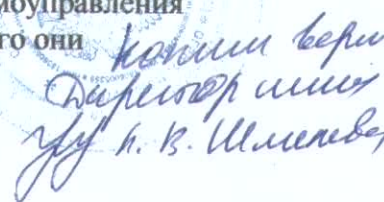 моуправления
го они
копии верн
Директор школы
Н. В. Шмелева